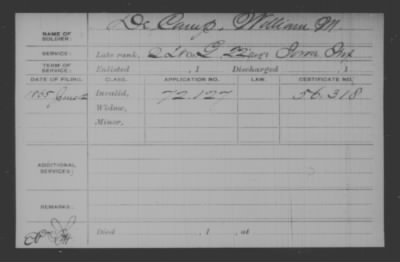 NAME OF SOLDIER: De Camp, William M
SERVICE: Late rank, Co. G, 22 Reg't Iowa Inf
TERM OF SERVICE: Enlisted , 1 Discharged , 1
DATE OF FILING. CLASS. APPLICATION NO. LAW. CERTIFICATE NO.
1865 June 2 Invalid, 72.127 56.318
Widow,
Minor,
ADDITIONAL SERVICES:
REMARKS:
Died , 1 , at